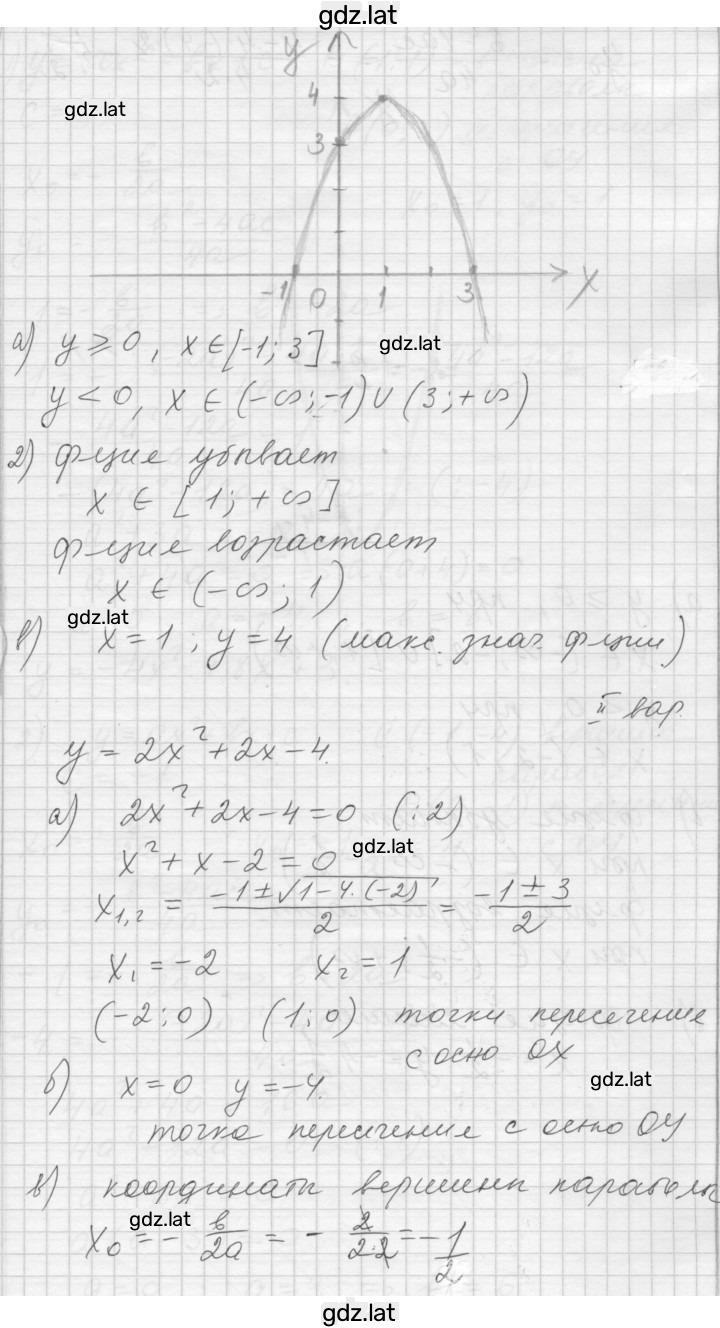 gdz.lat
y
4
gdz.lat
3
-1 0 1 3 x
а) y ⩾ 0, x ∈ [-1; 3]
gdz.lat
y < 0, x ∈ (-∞; -1) ∪ (3; +∞)
2) ф-ция убывает
x ∈ [1; +∞]
ф-ция возрастает
x ∈ (-∞; 1)
gdz.lat
в) x = 1; y = 4 (макс. знач. ф-ции)
II вар.
y = 2x² + 2x - 4.
а) 2x² + 2x - 4 = 0 (:2)
gdz.lat
x² + x - 2 = 0
x₁,₂ = (-1 ± √(1 - 4·(-2)))/2 = (-1 ± 3)/2
x₁ = -2 x₂ = 1
(-2; 0) (1; 0) точки пересечение
с осью OX
gdz.lat
б) x = 0 y = -4.
точка пересечение с осью OY
в) координаты вершины параболы
gdz.lat
x₀ = - b/2a = - 2/2·2 = - 1/2
gdz.lat